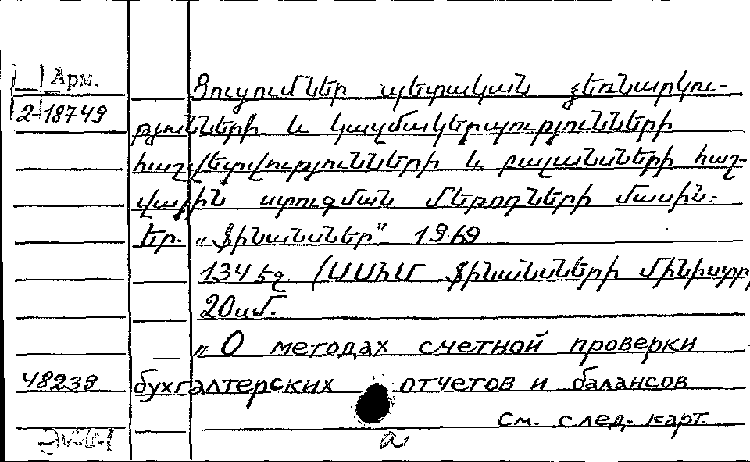 Арм.
2-18749
Ցուցումներ պետական ձեռնարկու-
թյունների և կազմակերպությունների
հաշվետվությունների և բալանսների հաշ-
վային ստուգման մեթոդների մասին.
Եր. „Ֆինանսներ" 1969
134 էջ (ՍՍՀՄ Ֆինանսների մինիստր
20սմ.
„О методах счетной проверки
48239 бухгалтерских отчетов и балансов
См. след. карт.
а